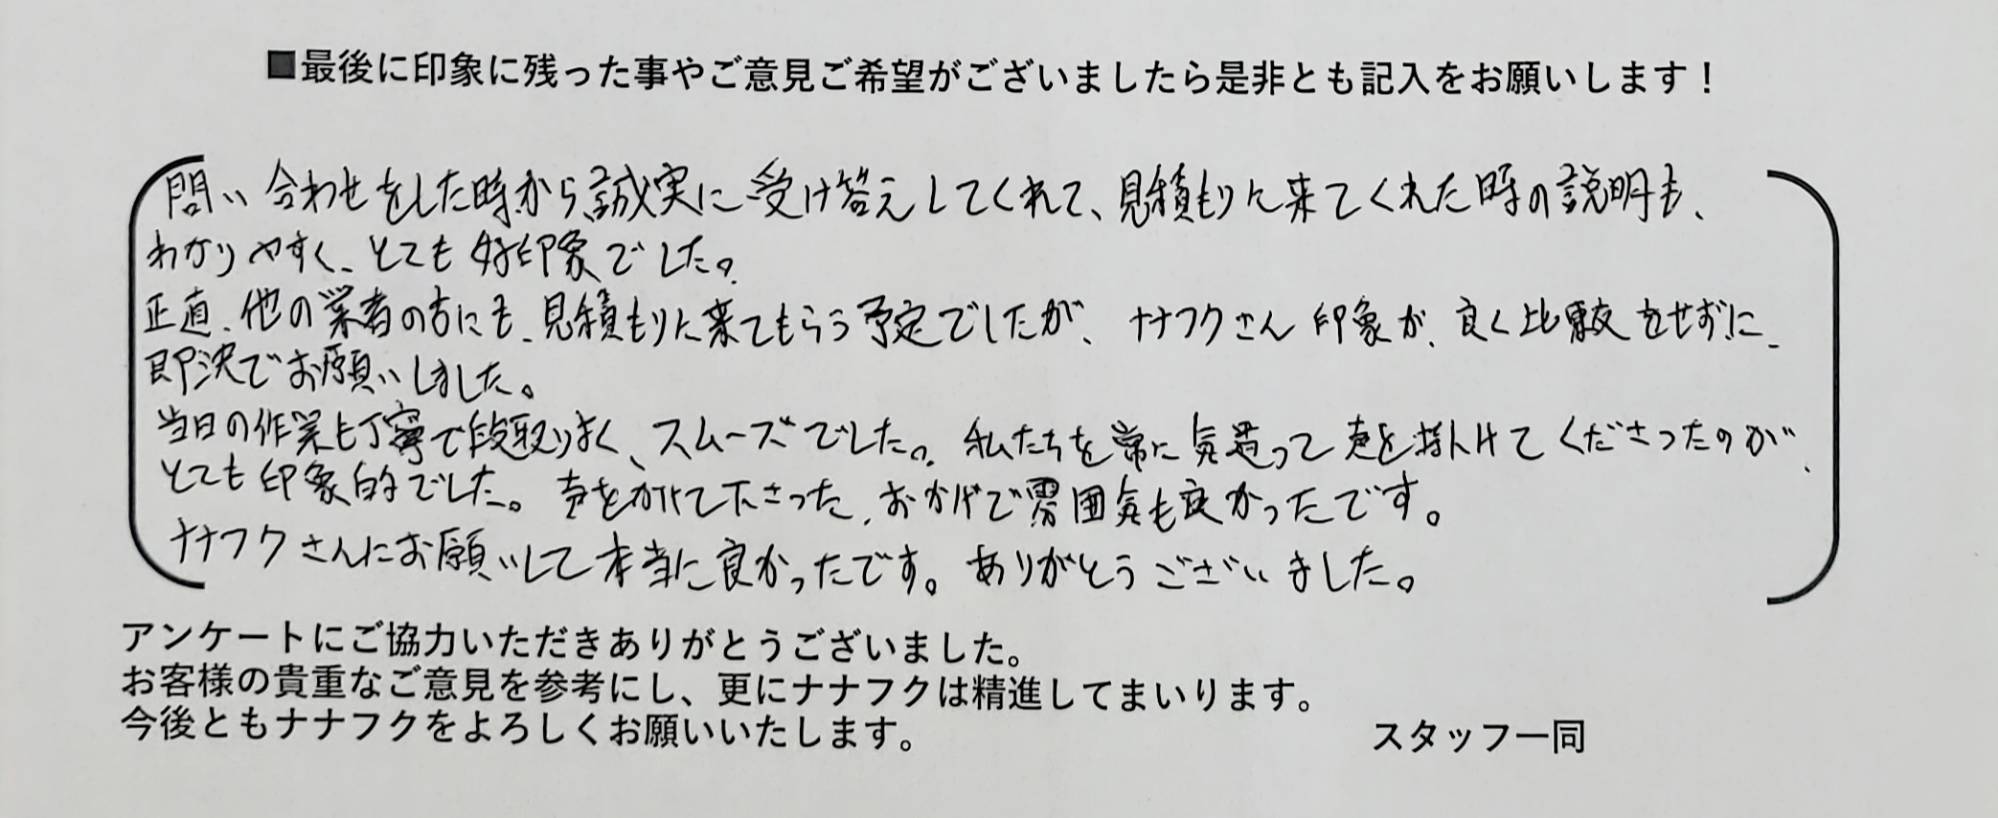 ■最後に印象に残った事やご意見ご希望がございましたら是非とも記入をお願いします！
問い合わせをした時から誠実に受け答えしてくれて、見積もりに来てくれた時の説明も、
わかりやすく、とても好印象でした。
正直、他の業者の方にも、見積もりに来てもらう予定でしたが、ナナフクさん印象が、良く比較をせずに、
即決でお願いしました。
当日の作業も丁寧で段取りよく、スムーズでした。私たちを常に気遣って声を掛けてくださったのが、
とても印象的でした。声をかけて下さった、おかげで雰囲気も良かったです。
ナナフクさんにお願いして本当に良かったです。ありがとうございました。
アンケートにご協力いただきありがとうございました。
お客様の貴重なご意見を参考にし、更にナナフクは精進してまいります。
今後ともナナフクをよろしくお願いいたします。
スタッフ一同